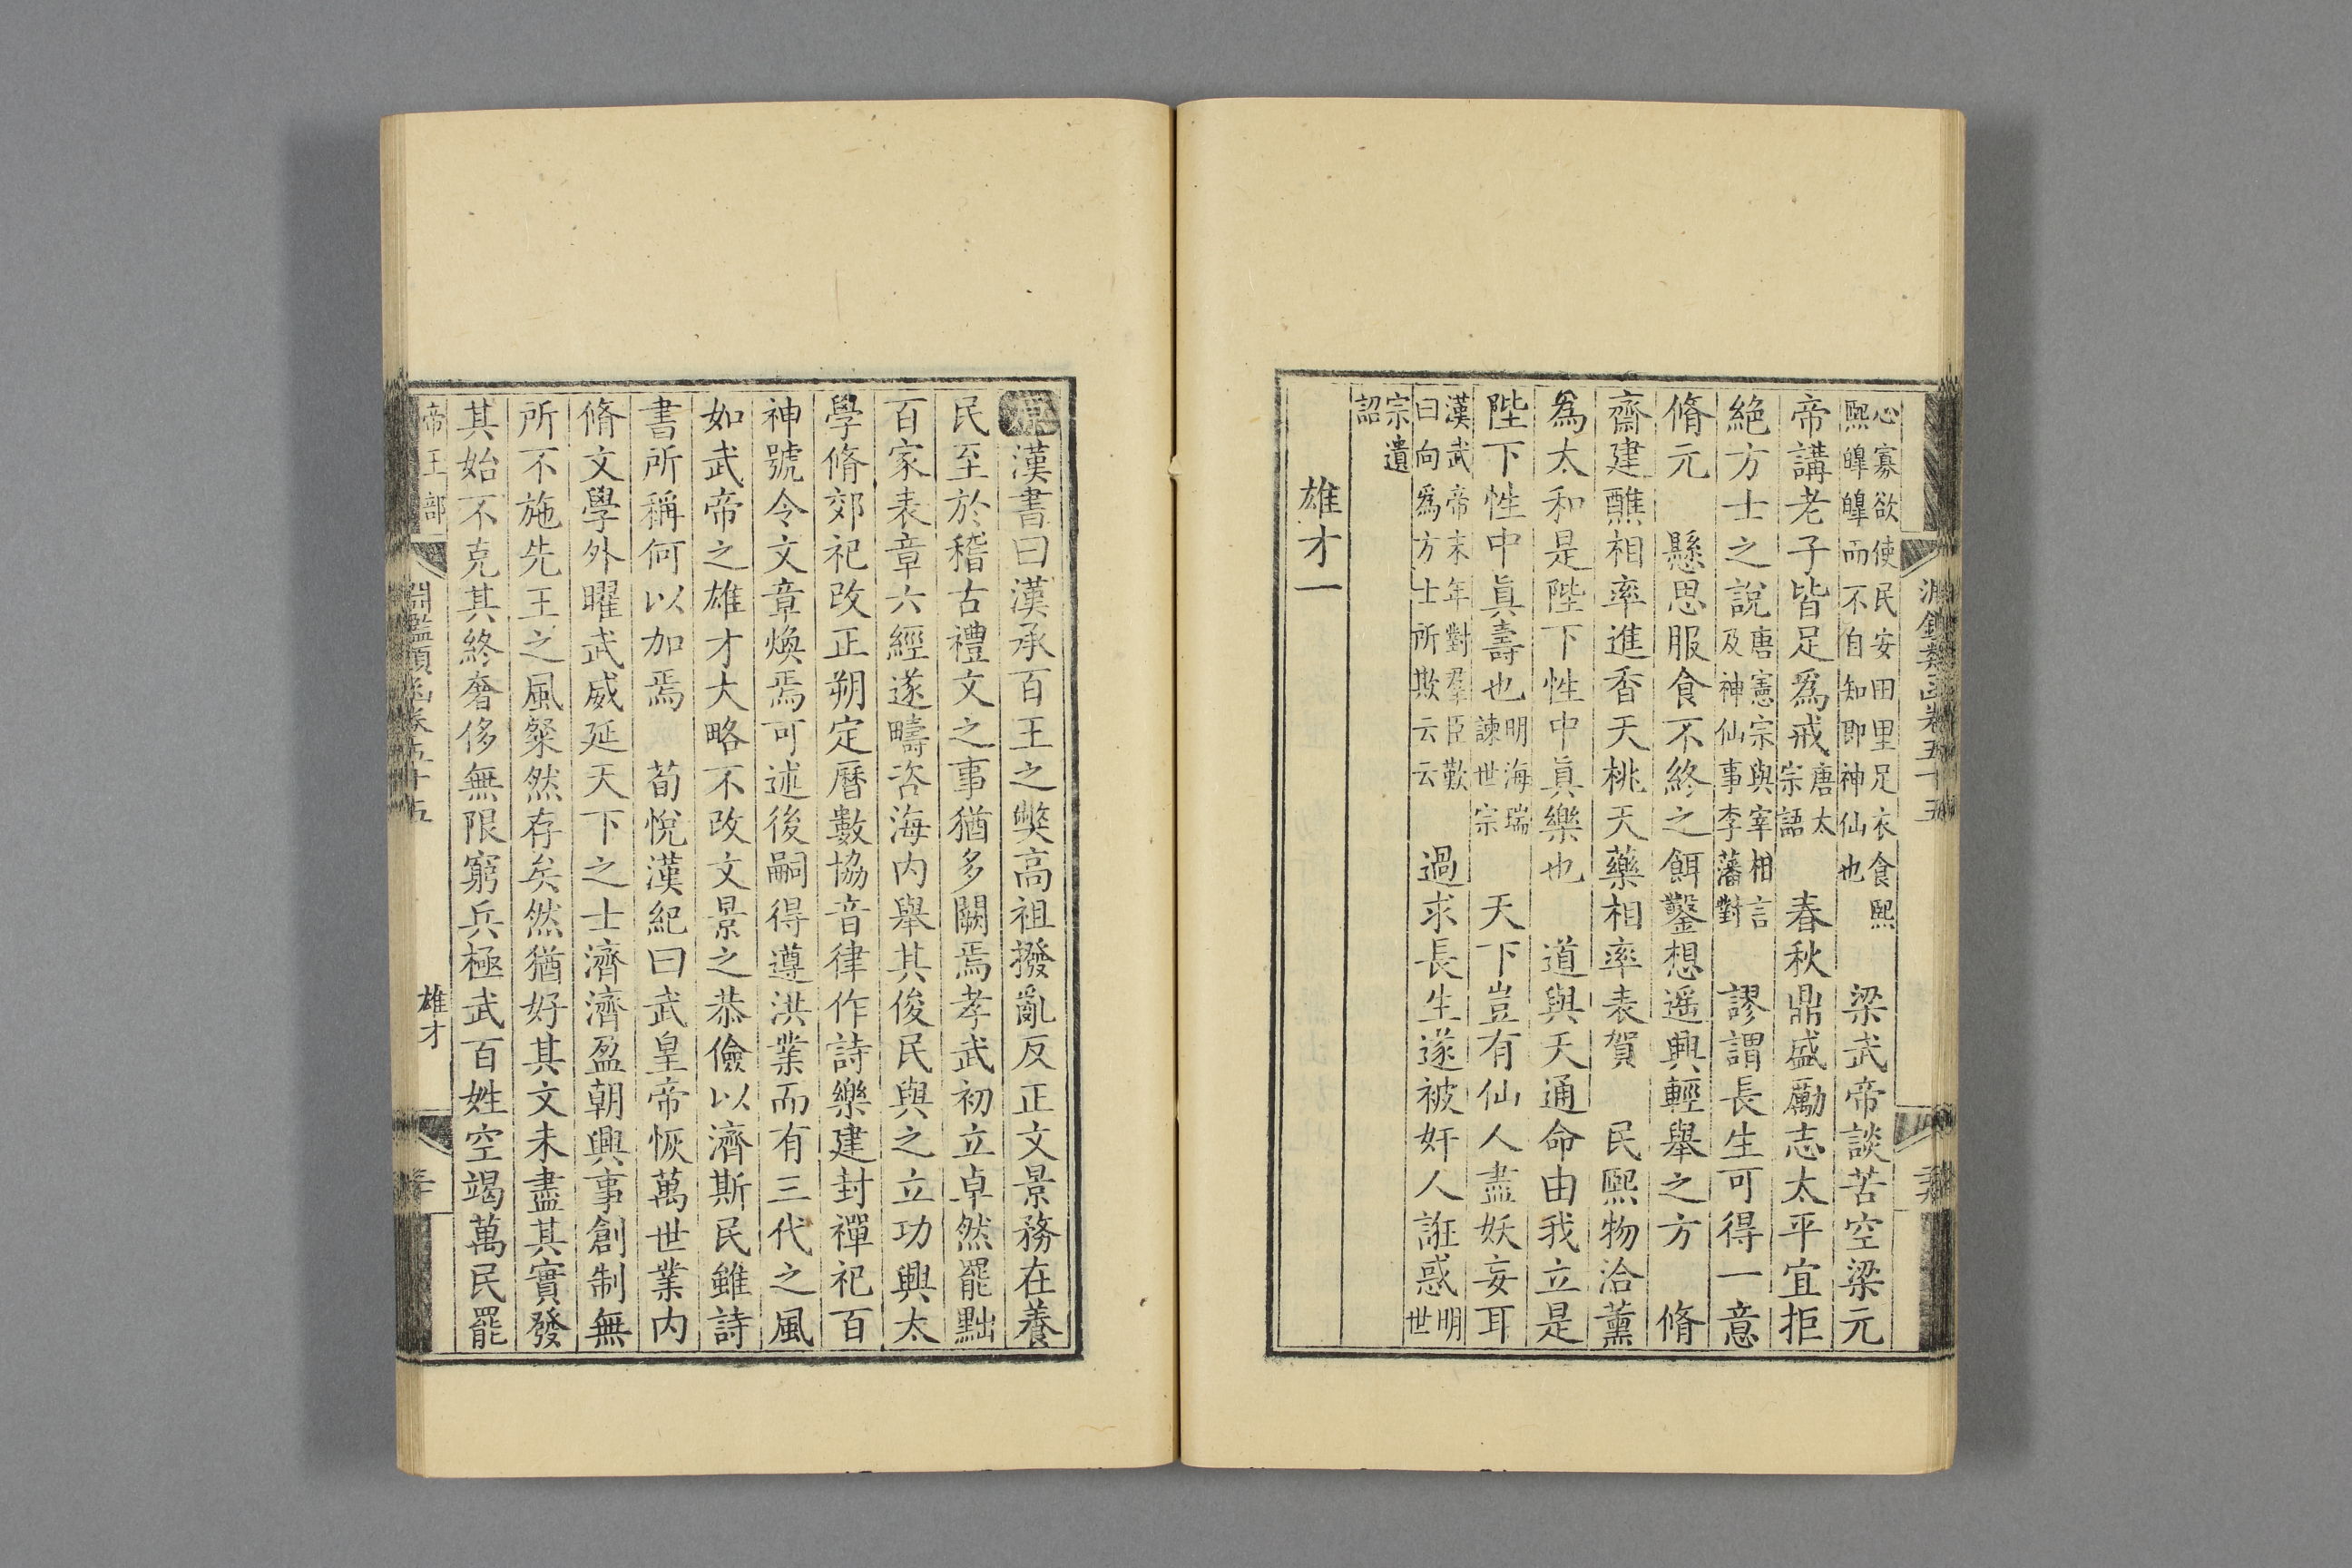 淵鑑類函卷五十五
心寡欲使民安田里足衣食熙
熙皥皥而不自知即神仙也
梁武帝談苦空梁元
帝講老子皆足爲戒
唐太
宗語
春秋鼎盛勵志太平宜拒
絕方士之說
唐憲宗與宰相言
及神仙事李藩對
謬謂長生可得一意
脩元 懸思服食不終之餌鑿想遥興輕舉之方 脩
齋建醮相率進香天桃天藥相率表賀 民熙物洽薰
爲太和是陛下性中眞樂也 道與天通命由我立是
陛下性中眞壽也
明海瑞
諫世宗
天下豈有仙人盡妖妄耳
漢武帝末年對羣臣歎
曰向爲方士所欺云云
過求長生遂被奸人誑惑
明
世
宗遺
詔
雄才一
原漢書曰漢承百王之獘高祖撥亂反正文景務在養
民至於稽古禮文之事猶多闕焉孝武初立卓然罷黜
百家表章六經遂疇咨海内舉其俊民與之立功興太
學脩郊祀改正朔定曆數協音律作詩樂建封禪祀百
神號令文章煥焉可述後嗣得遵洪業而有三代之風
如武帝之雄才大略不改文景之恭儉以濟斯民雖詩
書所稱何以加焉 荀悅漢紀曰武皇帝恢萬世業内
脩文學外曜武威延天下之士濟濟盈朝興事創制無
所不施先王之風粲然存矣然猶好其文未盡其實發
其始不克其終奢侈無限窮兵極武百姓空竭萬民罷
帝王部
淵鑑類函卷五十五
雄才